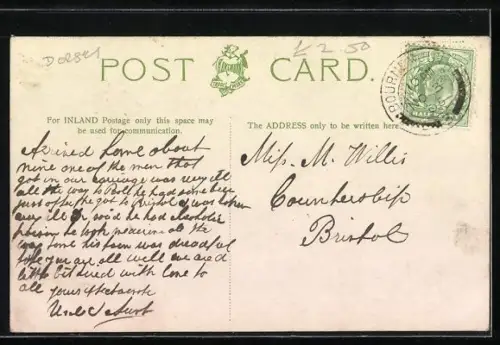 DORSET
£2.50
POST CARD.
BOURNEM
HALFPENNY
For INLAND Postage only this space may
be used for communication.
The ADDRESS only to be written here.
Arrived home about
nine one of the men that
got in our carriage was very ill
all the way to Poole he had some beer
just after he got to Bristol & was taken
very ill he said he had alcoholic
poison he kept
home his was dreadful
hope you are all well we are a
little bit tired with love to
all yours affectionate
Uncle & Aunt
Miss M. Willis
Counterslip
Bristol